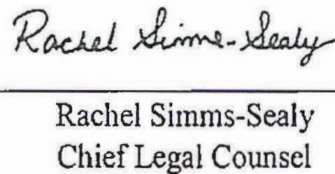 Rachel Simms-Sealy
Rachel Simms-Sealy
Chief Legal Counsel